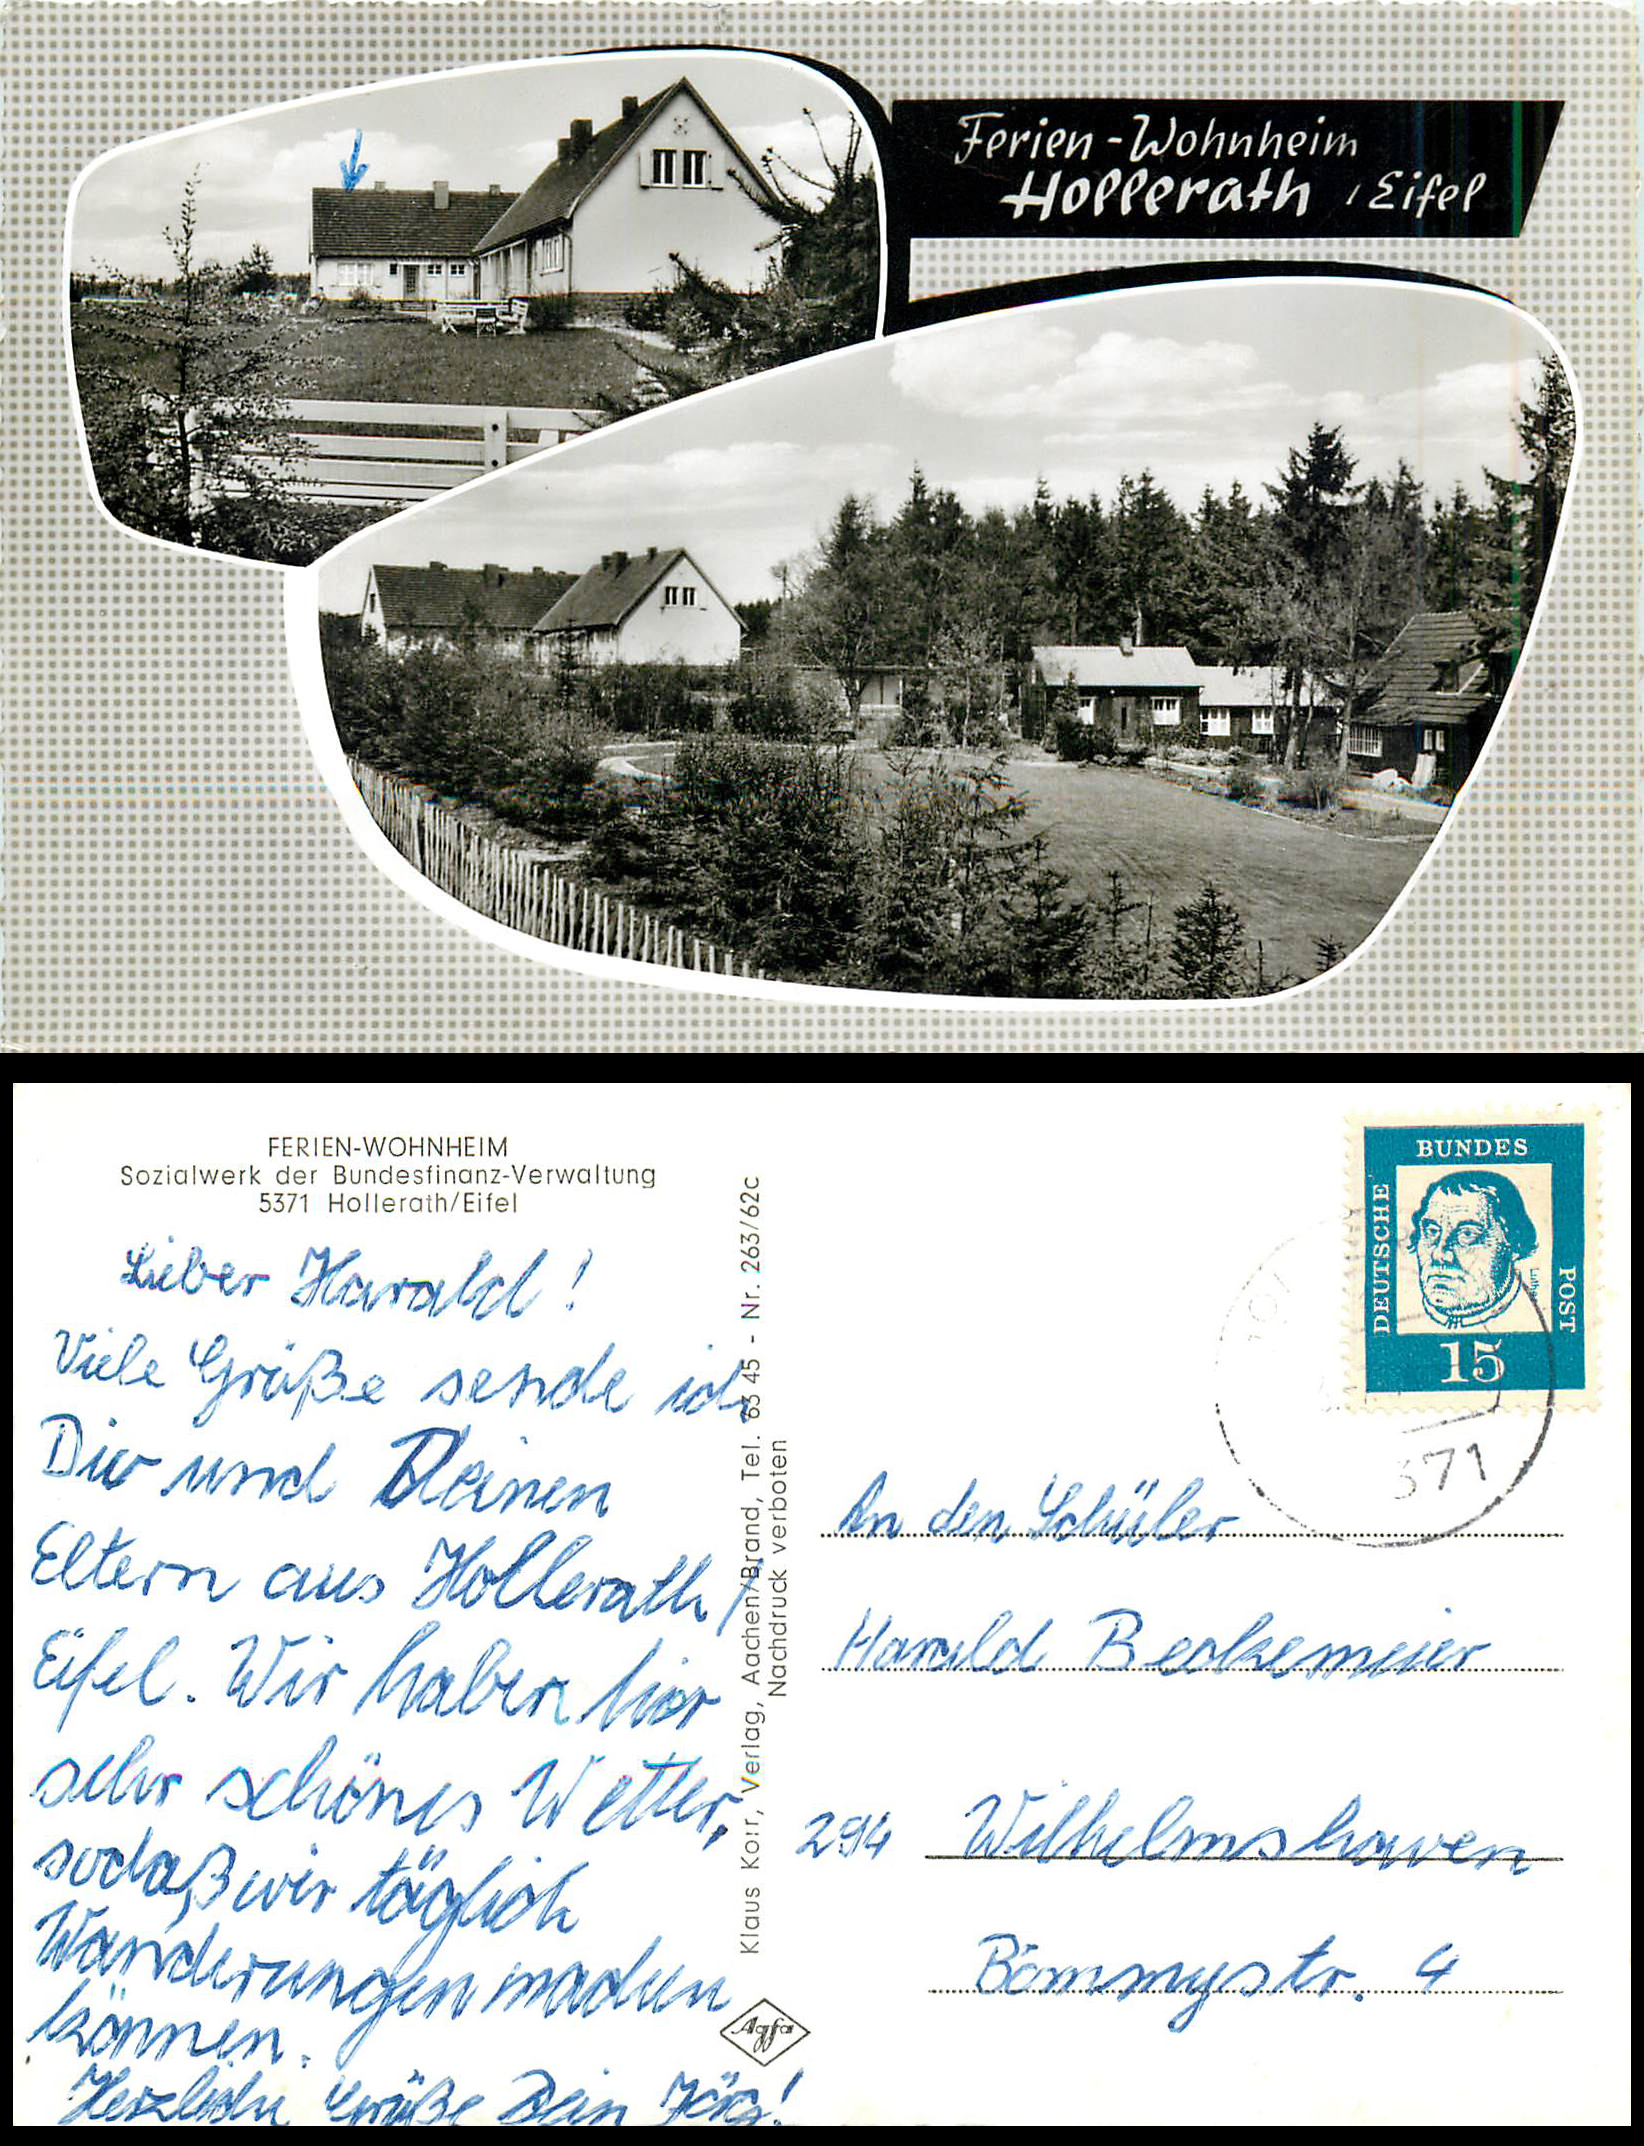 Ferien-Wohnheim
Hollerath / Eifel
FERIEN-WOHNHEIM
Sozialwerk der Bundesfinanz-Verwaltung
5371 Hollerath/Eifel
Lieber Harald!
Viele Grüße sende ich
Dir und Deinen
Eltern aus Hollerath/
Eifel. Wir haben hier
sehr schönes Wetter,
sodaß wir täglich
Wanderungen machen
können.
Herzliche Grüße Dein Jörg!
Klaus Koir, Verlag, Aachen/Brand, Tel. 63 45 - Nr. 263/62c
Nachdruck verboten
Agfa
DEUTSCHE
BUNDES
POST
Luther
15
371
An den Schüler
Harald Beckemeier
294 Wilhelmshaven
Bömmystr. 4